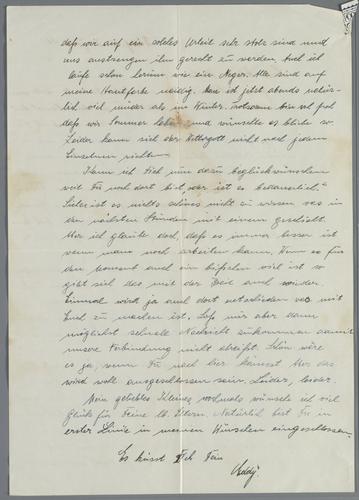 daß wir auf ein solches Urteil sehr stolz sind und
uns anstrengen ihm gerecht zu werden. Auch ich
laufe schon herum wie ein Neger. Alle sind auf
meine Hautfarbe neidig. Man ist jetzt abends natür-
lich viel müder als im Winter. Trotzdem bin ich froh
daß wir Sommer haben und wünschte es bliebe so.
Leider kann sich der Wettergott nicht nach jedem
Einzelnen richten.
Kann ich Dich nun dazu beglückwünschen
weil Du noch dort bist, oder ist es bedauerlich?
Sicher ist es nichts schönes nicht zu wissen was in
den nächsten Stunden mit einem geschieht.
Aber ich glaube doch, daß es immer besser ist
wenn man noch arbeiten kann. Wenn es für
den Moment auch ein bißchen viel ist so
gibt sich das mit der Zeit auch wieder.
Einmal wird ja auch dort entschieden was mit
Euch zu machen ist. Laß mir aber dann
möglichst schnelle Nachricht zukommen damit
unsere Verbindung nicht abreißt. Schön wäre
es ja, wenn Du noch hier kämest. Aber das
wird wohl ausgeschlossen sein. Leider, leider.
Mein geliebtes Kleines nochmals wünsche ich viel
Glück für Deine lb. Eltern. Natürlich bist Du in
erster Linie in meinen Wünschen eingeschlossen.
Es küsst Dich Dein